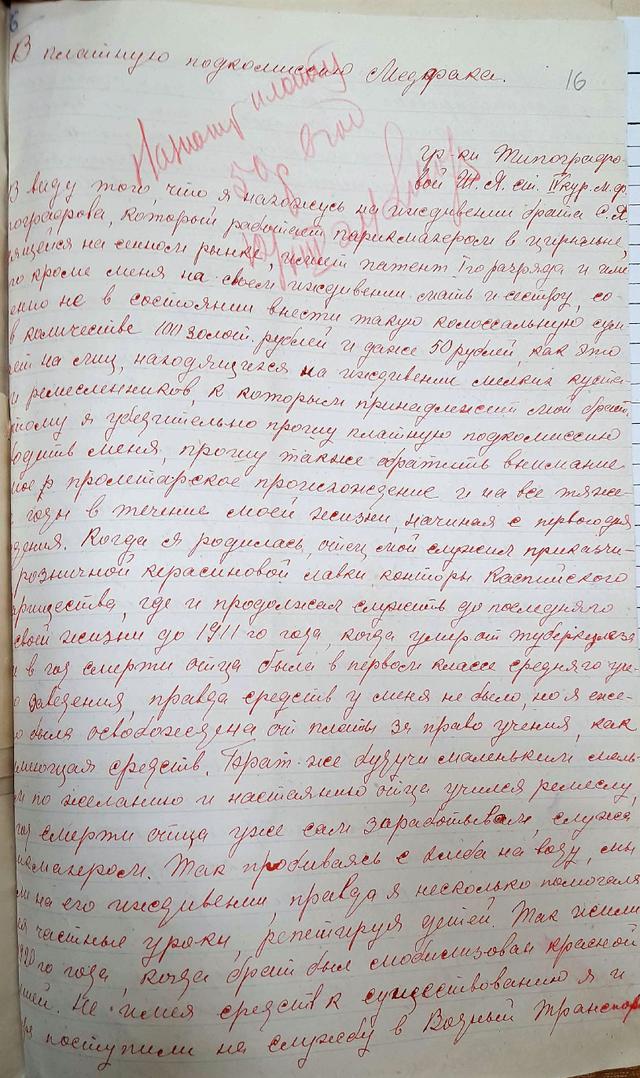 В платную подкомиссию Медфака.
16
Назначить плату
50р в год
гр-ки Типографо-
вой Ш. Я. ст. IV кур. м. ф.
В виду того, что я нахожусь на иждивении брата С. Я.
пографова, который работает парикмахером в цирюльне,
ящейся на сенном рынке, имеет патент I го разряда и име
го кроме меня на своем иждивении мать и сестру, со-
енно не в состоянии внести такую колоссальную сум-
в количестве 100 золот. рублей и даже 50 рублей, как это
ет на лиц, находящихся на иждивении мелких куста-
и ремесленников, к которым принадлежит мой брат.
этому я убедительно прошу платную подкомиссию
бодить меня, прошу также обратить внимание
мое пролетарское происхождение и на все тяже-
годы в течение моей жизни, начиная с первого дня
дения. Когда я родилась, отец мой служил приказчи-
розничной керасиновой лавки конторы Каспийского
арищества, где и продолжал служить до последняго
своей жизни до 1911 го года, когда умер от туберкулеза
в год смерти отца была в первом классе средняго уче-
о заведения, правда средств у меня не было, но я еже-
о была освобождена от платы за право учения, как
имеющая средств. Брат же будучи маленьким маль-
м по желанию и настоянию отца учился ремеслу,
год смерти отца уже сам зарабатывал, служа
икмахером. Так пробиваясь с хлеба на воду, мы
ли на его иждивении, правда я несколько помогала
ая частные уроки, репетируя детей. Так жили
1920 го года, когда брат был мобилизован красной
мией. Не имея средств к существованию я и
поступили на службу в Водный Транспор